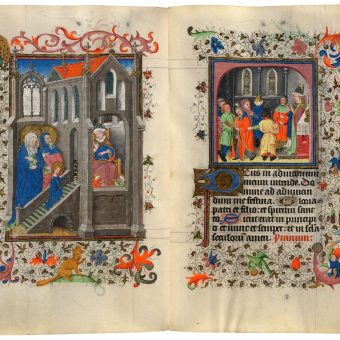 Deus in adiutorium
meum intende. Do
mine ad adiuuan
dum me festina. Gloria
patri et filio: et spiritui san
cto Sicut erat in principio
et nunc et semper: et in scla
seculorum amen.